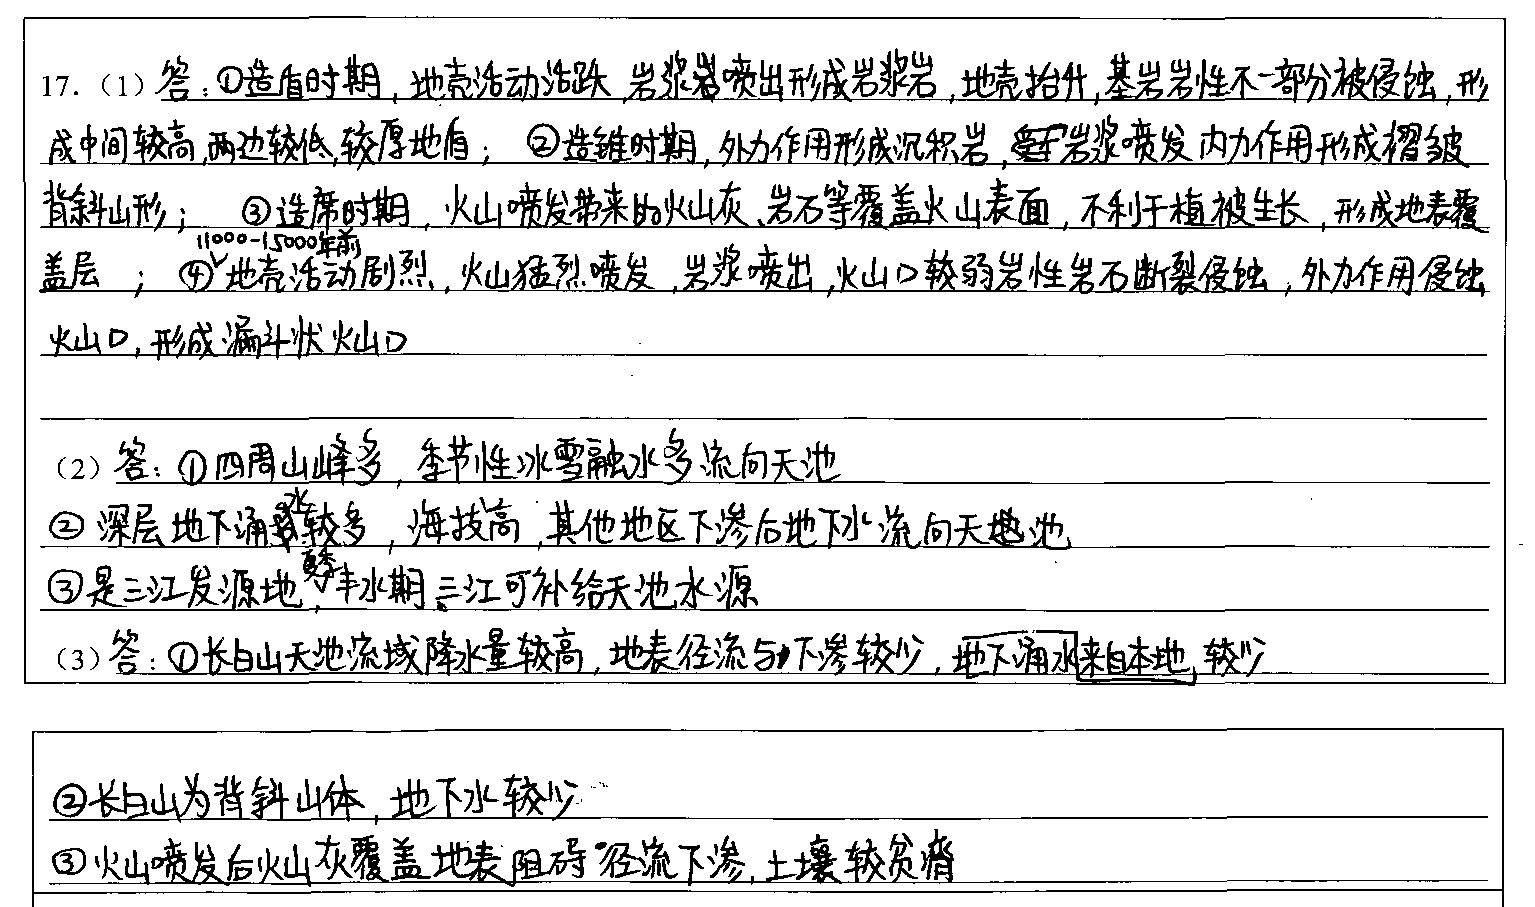 17.（1）答：①造盾时期，地壳活动活跃，岩浆喷出形成岩浆岩，地壳抬升，基岩岩性不一部分被侵蚀，形
成中间较高，两边较低，较厚地盾； ②造锥时期，外力作用形成沉积岩，岩浆喷发内力作用形成褶皱
背斜山形； ③造席时期，火山喷发带来的火山灰、岩石等覆盖火山表面，不利于植被生长，形成地表覆
11000-15000年前
盖层 ； ④地壳活动剧烈，火山猛烈喷发，岩浆喷出，火山口较弱岩性岩石断裂侵蚀，外力作用侵蚀
火山口，形成漏斗状火山口
（2）答：①四周山峰多，季节性冰雪融水多流向天池
②深层地下涌水较多，海拔高，其他地区下渗后地下水流向天池
③是三江发源地，夏季丰水期三江可补给天池水源
（3）答：①长白山天池流域降水量较高，地表径流与下渗较少，地下涌水来自本地较少
②长白山为背斜山体，地下水较少
③火山喷发后火山灰覆盖地表阻碍径流下渗，土壤较贫瘠